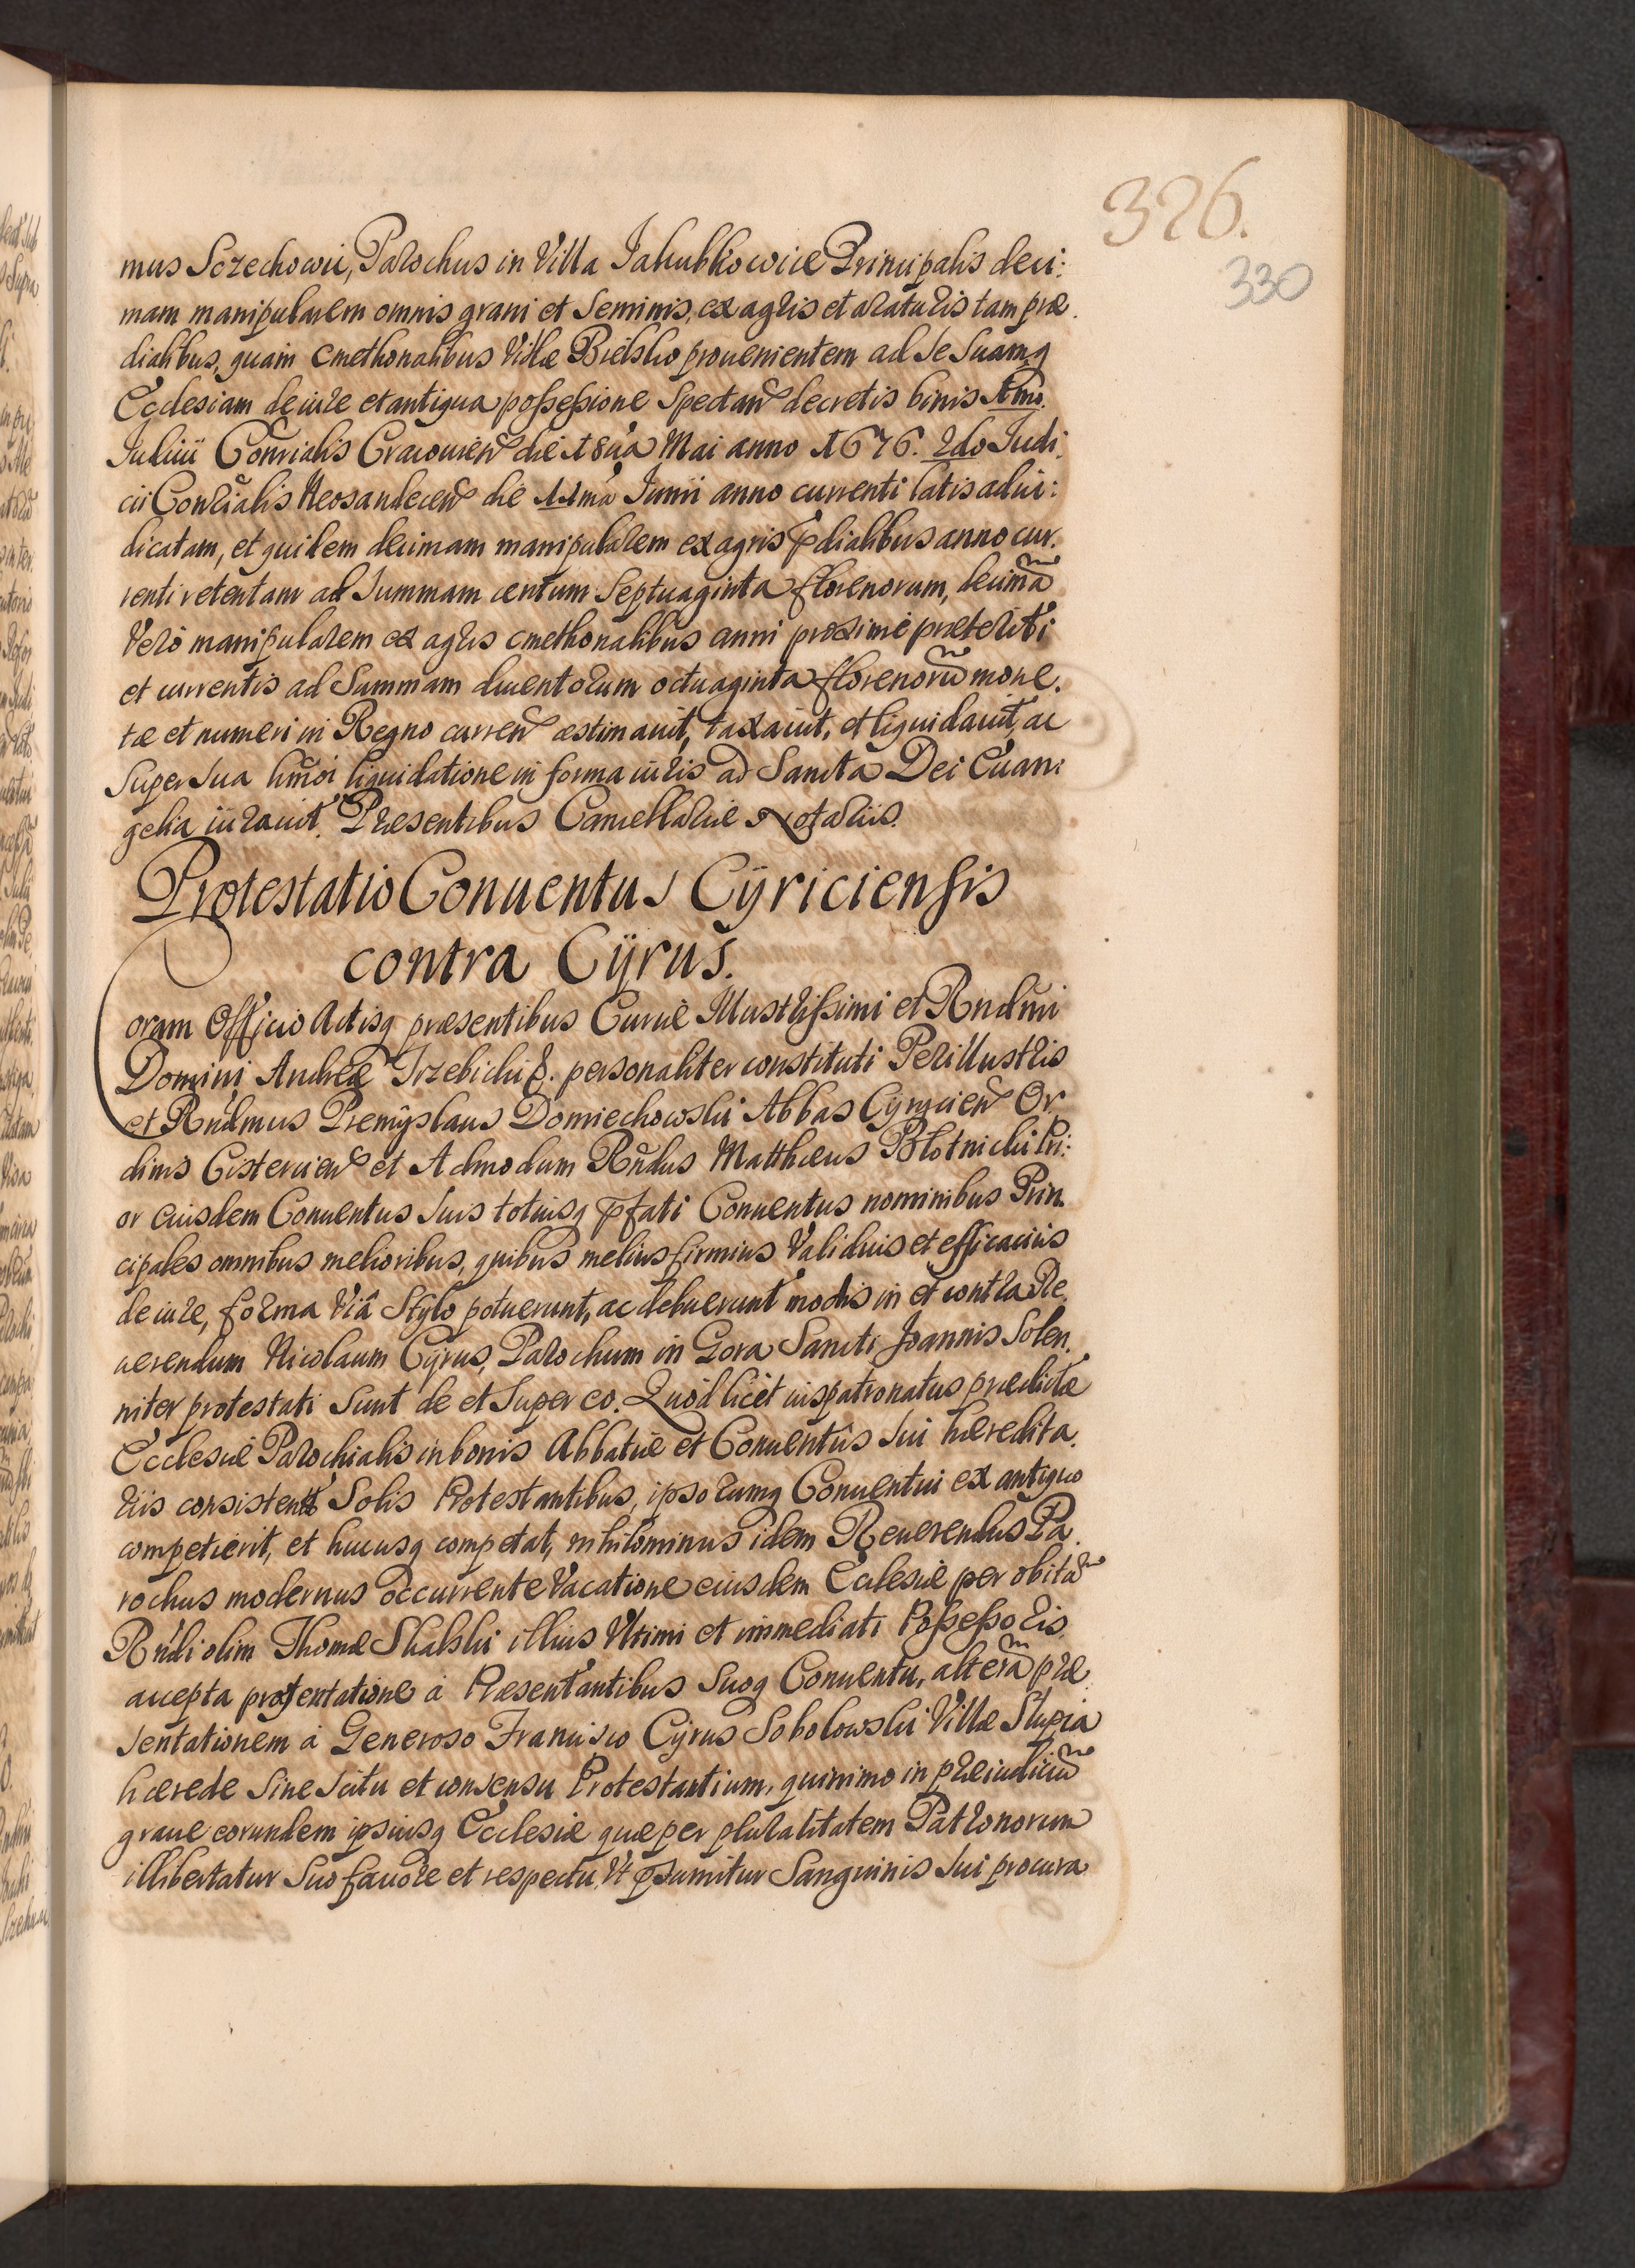 326.
330
mus Sczechowic, Parochus in Villa Jakubkowice Principalis deci:
mam manipularem omnis grani et Seminis, ex agris et araturis tam præ
dialibus, quam cmethonalibus Villæ Bielsko prouenientem ad Se Suamq
Ecclesiam de iure et antiqua possessione Spectan decretis binis 1mo.
Iudicii Consrialis Cracouien die 18ua Mai anno 1676. 2do Judi
cii Consrialis Neosandecen die 11ma Junii anno currenti latis adiu:
dicatam, et quidem decimam manipularem ex agris pdialibus anno cur.
renti retentam ad Summam centum Septuaginta florenorum, decimã
Vero manipularem ex agris cmethonalibus anni proxime præteriti
et currentis ad Summam ducentorum octuaginta florenorũ mone.
tæ et numeri in Regno curren æstimauit, taxauit, et liquidauit, ac
Super sua hmõi liquidatione in forma iuris ad Sancta Dei Euan:
gelia iurauit. Præsentibus Cancellariæ Notariis.
Protestatio Conuentus Cÿriciensis
contra Cÿrus.
Coram Officio Actisq præsentibus Curiæ Illustrissimi et Rndmi
Domini Andreæ Trzebicki &. personaliter constituti Perillustris
et Rndmus Premÿslaus Domiechowski Abbas Cÿrycien Or
dinis Cistercien et Admodum Rndus Matthæus Błotnicki Pri:
or eiusdem Conuentus Suis totiusq pfati Conuentus nominibus Prin
cipales omnibus melioribus, quibus melius firmius Validius et efficacius
de iure, forma Viâ Stÿlo potuerunt, ac debuerunt modis in et contra Re
uerendum Nicolaum Cÿrus, Parochum in Gora Sancti Joannis Solen.
niter protestati Sunt de et Super eo. Quod licet iuspatronatus prædictæ
Ecclesiæ Parochialis in bonis Abbatiæ et Conuentûs Sui hæredita.
riis consistent Solis Protestantibus, ipsorumq Conuentui ex antiquo
competierit, et hucusq competat, nihilominus idem Reuerendus Pa
rochus modernus occurrente Vacatione eiusdem Ecclesiæ per obitũ
Rndi olim Thomæ Skalski illius Vltimi et immediati Possessoris
accepta præsentatione à Præsentantibus Suoq Conuentu, alterã præ
sentationem à Generoso Francisco Cÿrus Sobolowski Villæ Slupia
hærede Sine Scitu et consensu Protestantium, quinimo in præiudiciũ
graue eorundem ipsiusq Ecclesiæ quæ per pluralitatem Patronorum
illibertatur Suo fauore et respectu, Vt psumitur Sanguinis Sui procura